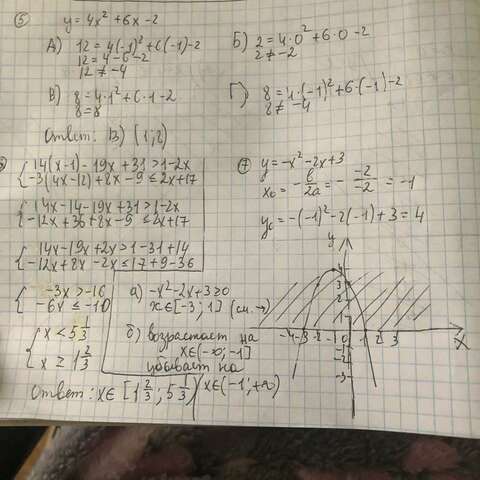 ⑤ y = 4x² + 6x - 2
А) 12 = 4(-1)² + 6(-1) - 2
12 = 4 - 6 - 2
12 ≠ -4
Б) 2 = 4·0² + 6·0 - 2
2 ≠ -2
В) 8 = 4·1² + 6·1 - 2
8 = 8
Г) 8 = 4·(-1)² + 6·(-1) - 2
8 ≠ -4
Ответ: В) (1;
{ 14(x-1) - 19x + 31 > 1 - 2x
-3(4x-12) + 8x - 9 ≤ 2x + 17
{ 14x - 14 - 19x + 31 > 1 - 2x
-12x + 36 + 8x - 9 ≤ 2x + 17
{ 14x - 19x + 2x > 1 - 31 + 14
-12x + 8x - 2x ≤ 17 + 9 - 36
{ -3x > -16
-6x ≤ -10
{ x < 5 1/3
x ≥ 1 2/3
Ответ: x∈ [1 2/3; 5 1/3)
⑦ y = -x² - 2x + 3
x₆ = - b/2a = - -2/-2 = -1
y₆ = -(-1)² - 2(-1) + 3 = 4
а) -x² - 2x + 3 ≥ 0
x∈ [-3; 1] (см. →)
б) возрастает на
x∈(-∞; -1]
убывает на
x∈(-1; +∞)
y
4
3
2
-4 -3 -2 -1 0 1 2 3
x
-2
-3